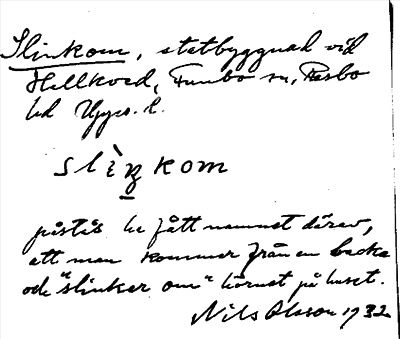 Slinkom, statbyggnad vid
Hellkved, Funbo sn, Rasbo
hd Upps. l.
slìŋkom
påstås ha fått namnet därav,
att man kommer från en backe
och "slinker om" hörnet på huset.
Nils Olsson 1932